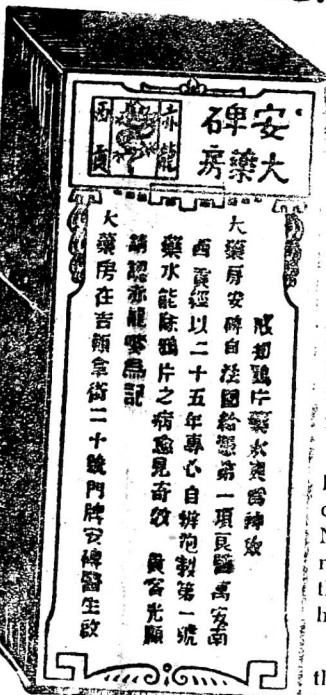 安碑石
大藥房
赤龍
西貢
戒却鴉片藥水爽當神效
大藥房安碑自法國給憑第一項良醫寓安南
西貢經以二十五年專心自辦炮製第一號
藥水能除鴉片之病愈見奇效 貴客光顧
請認赤龍嘜爲記
大藥房在吉頼拿街二十號門牌安碑醫生啟